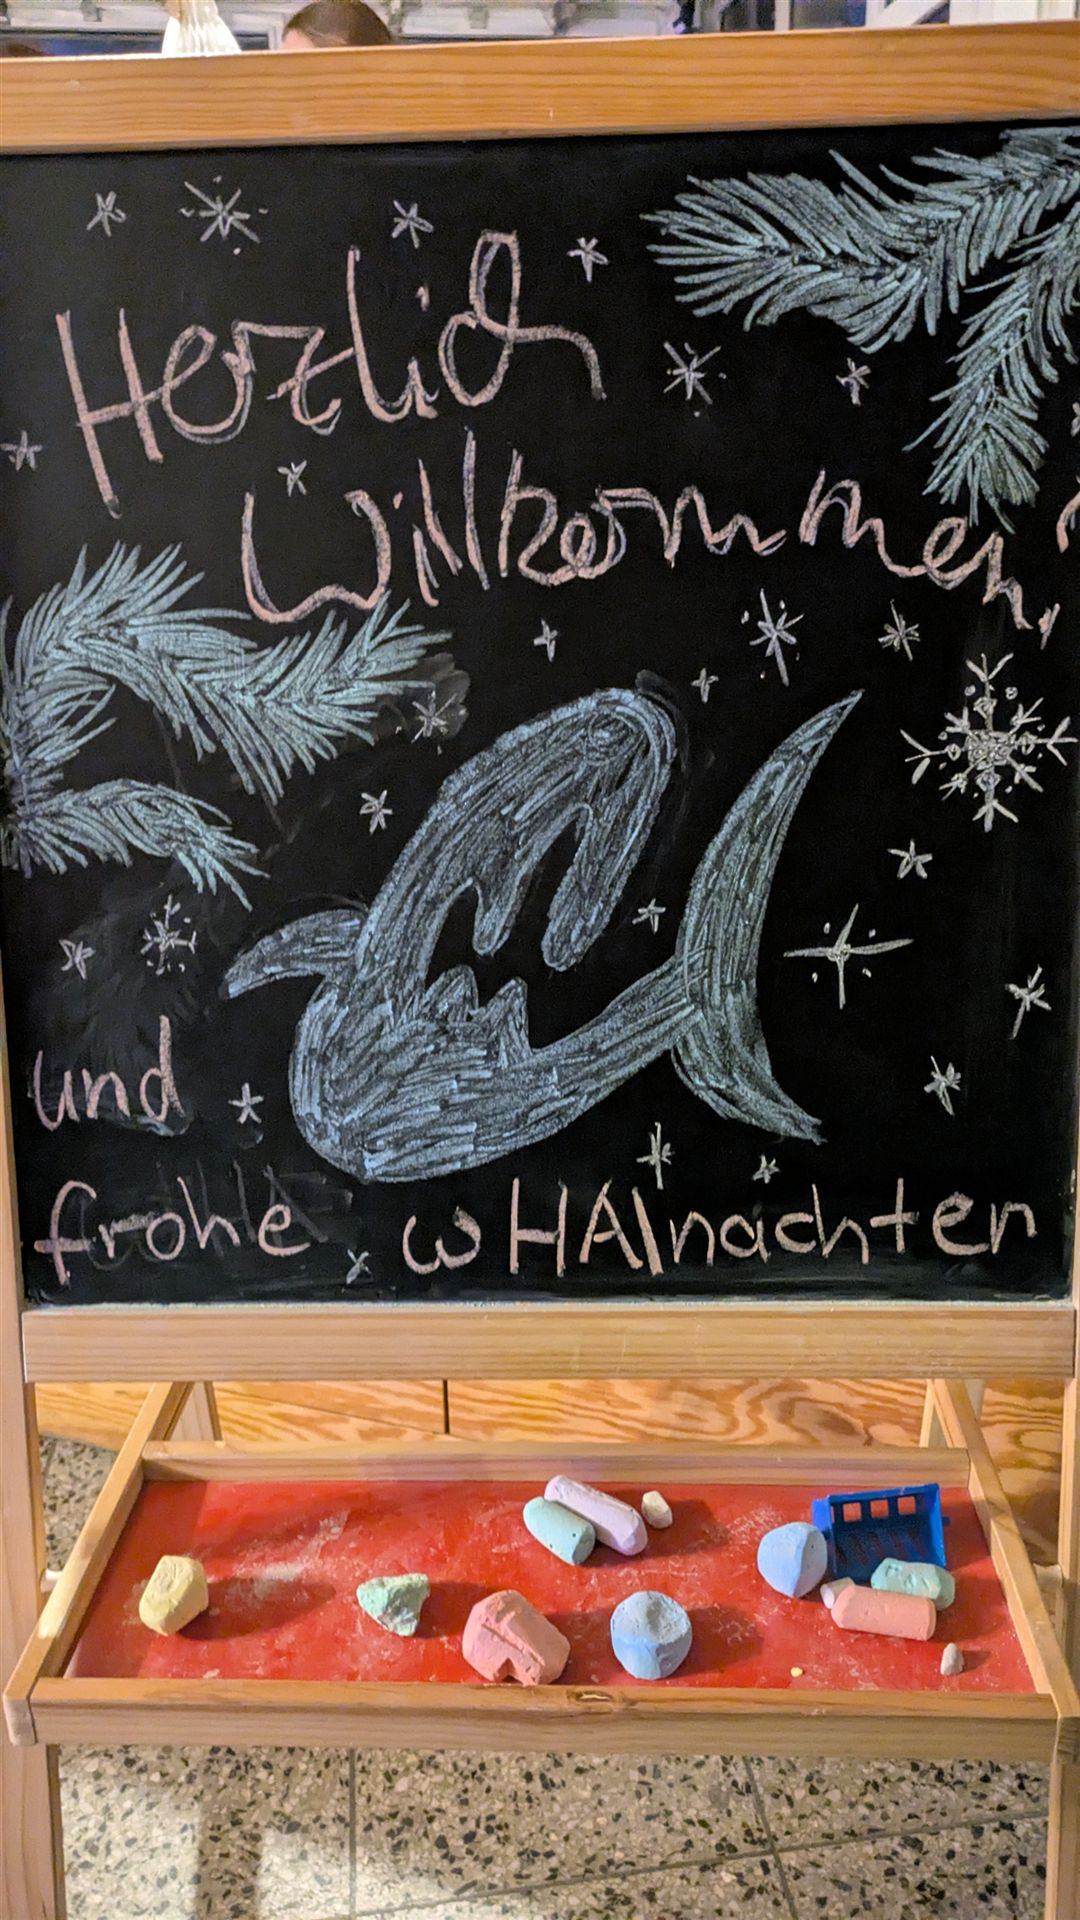 Herzlich
Willkommen,
und
frohe wHAInachten